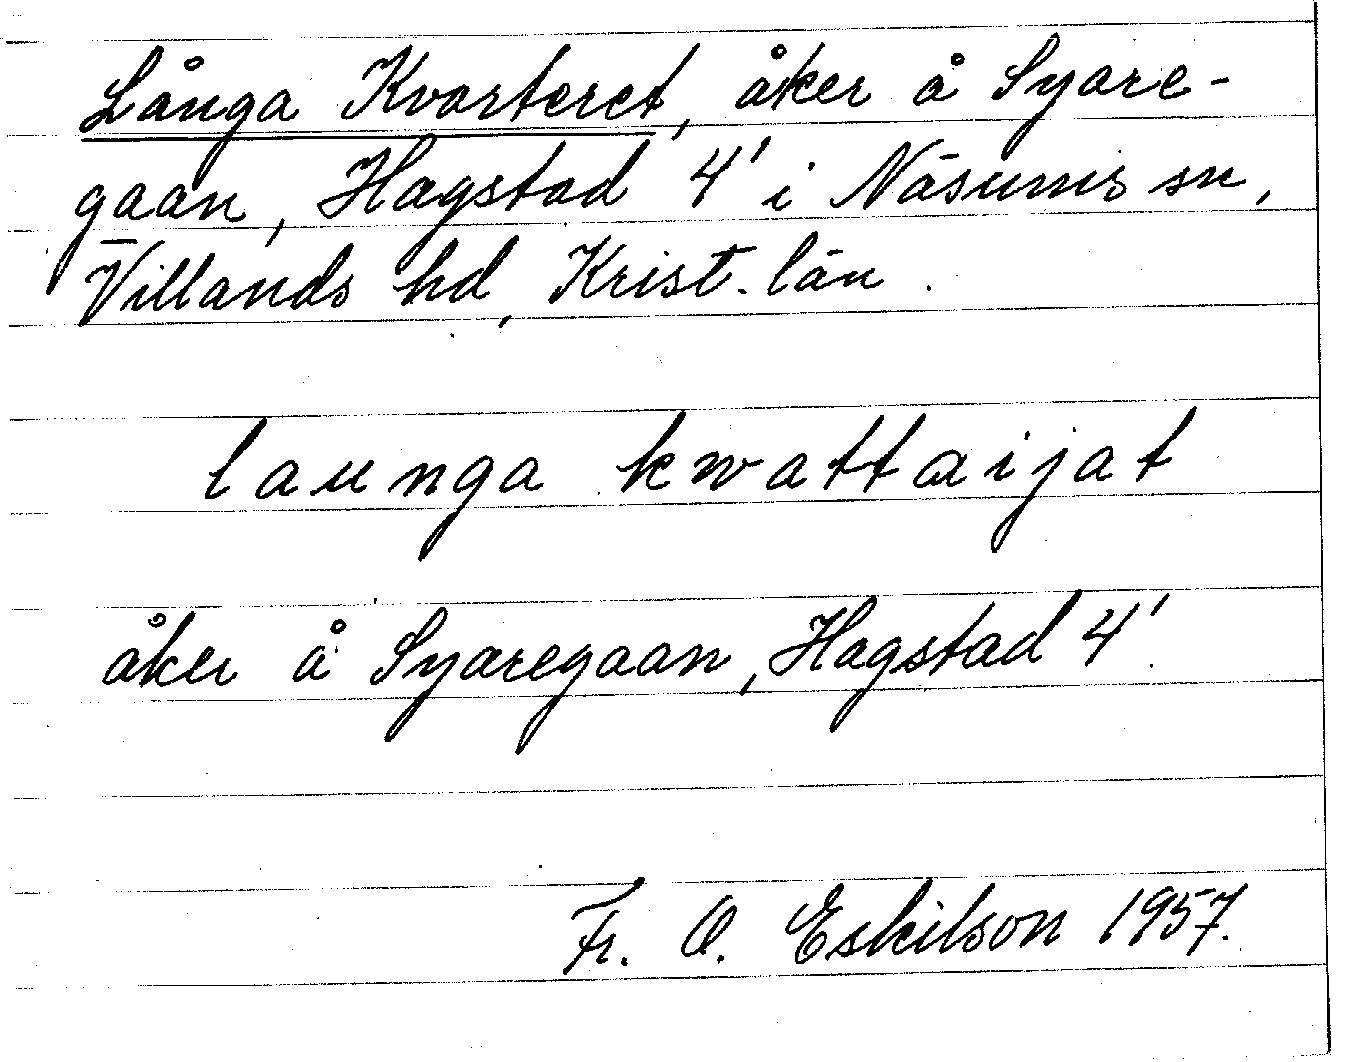 Långa Kvarteret, åker å Syare-
gaan, Hagstad 4' i Näsums sn,
Villands hd, Krist. län.
launga kwattaijat
åker å Syaregaan, Hagstad 4'.
Fr. O. Eskilson 1957.